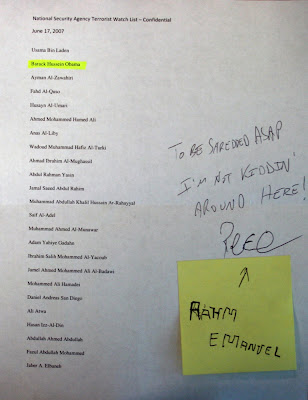 National Security Agency Terrorist Watch List – Confidential
June 17, 2007
Usama Bin Laden
Barack Hussein Obama
Ayman Al-Zawahiri
Fahd Al-Quso
Husayn Al-Umari
Ahmed Mohammed Hamed Ali
Anas Al-Liby
Wadoud Muhammad Hafiz Al-Turki
Ahmad Ibrahim Al-Mughassil
Abdul Rahman Yasin
Jamal Saeed Abdul Rahim
Muhammad Abdullah Khalil Hussain Ar-Rahayyal
Saif Al-Adel
Muhammad Ahmed Al-Munawar
Adam Yahiye Gadahn
Ibrahim Salih Mohammed Al-Yacoub
Jamel Ahmed Mohammed Ali Al-Badawi
Mohammed Ali Hamadei
Daniel Andreas San Diego
Ali Atwa
Hasan Izz-Al-Din
Abdullah Ahmed Abdullah
Fazul Abdullah Mohammad
Jaber A. Elbaneh
TO BE SHREDDED ASAP
I'M NOT KIDDIN'
AROUND HERE!
RAHM
EMANUEL